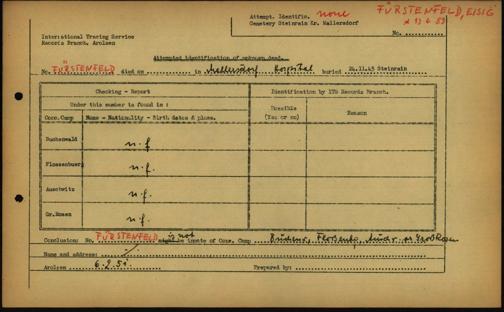 FÜRSTENFELD, EISIG
Attempt. Identific. none
Cemetery Steinrain Kr. Mallersdorf
No.
International Tracing Service
Records Branch, Arolsen
Attempted identification of unknown dead.
No. FÜRSTENFELD died on in Mallersdorf Hospital buried 24.11.45 Steinrain
Checking - Report
Identification by ITS Records Branch.
Under this number is found in :
Conc.Camp Name - Nationality - Birth dates & place.
Possible
(Yes or no)
Reason
Buchenwald n.f.
Flossenbuerg n.f.
Auschwitz n.f.
Gr.Rosen n.f.
Conclusion: No. FÜRSTENFELD is not might be inmate of Conc. Camp
Name and address:
Arolsen Prepared by: